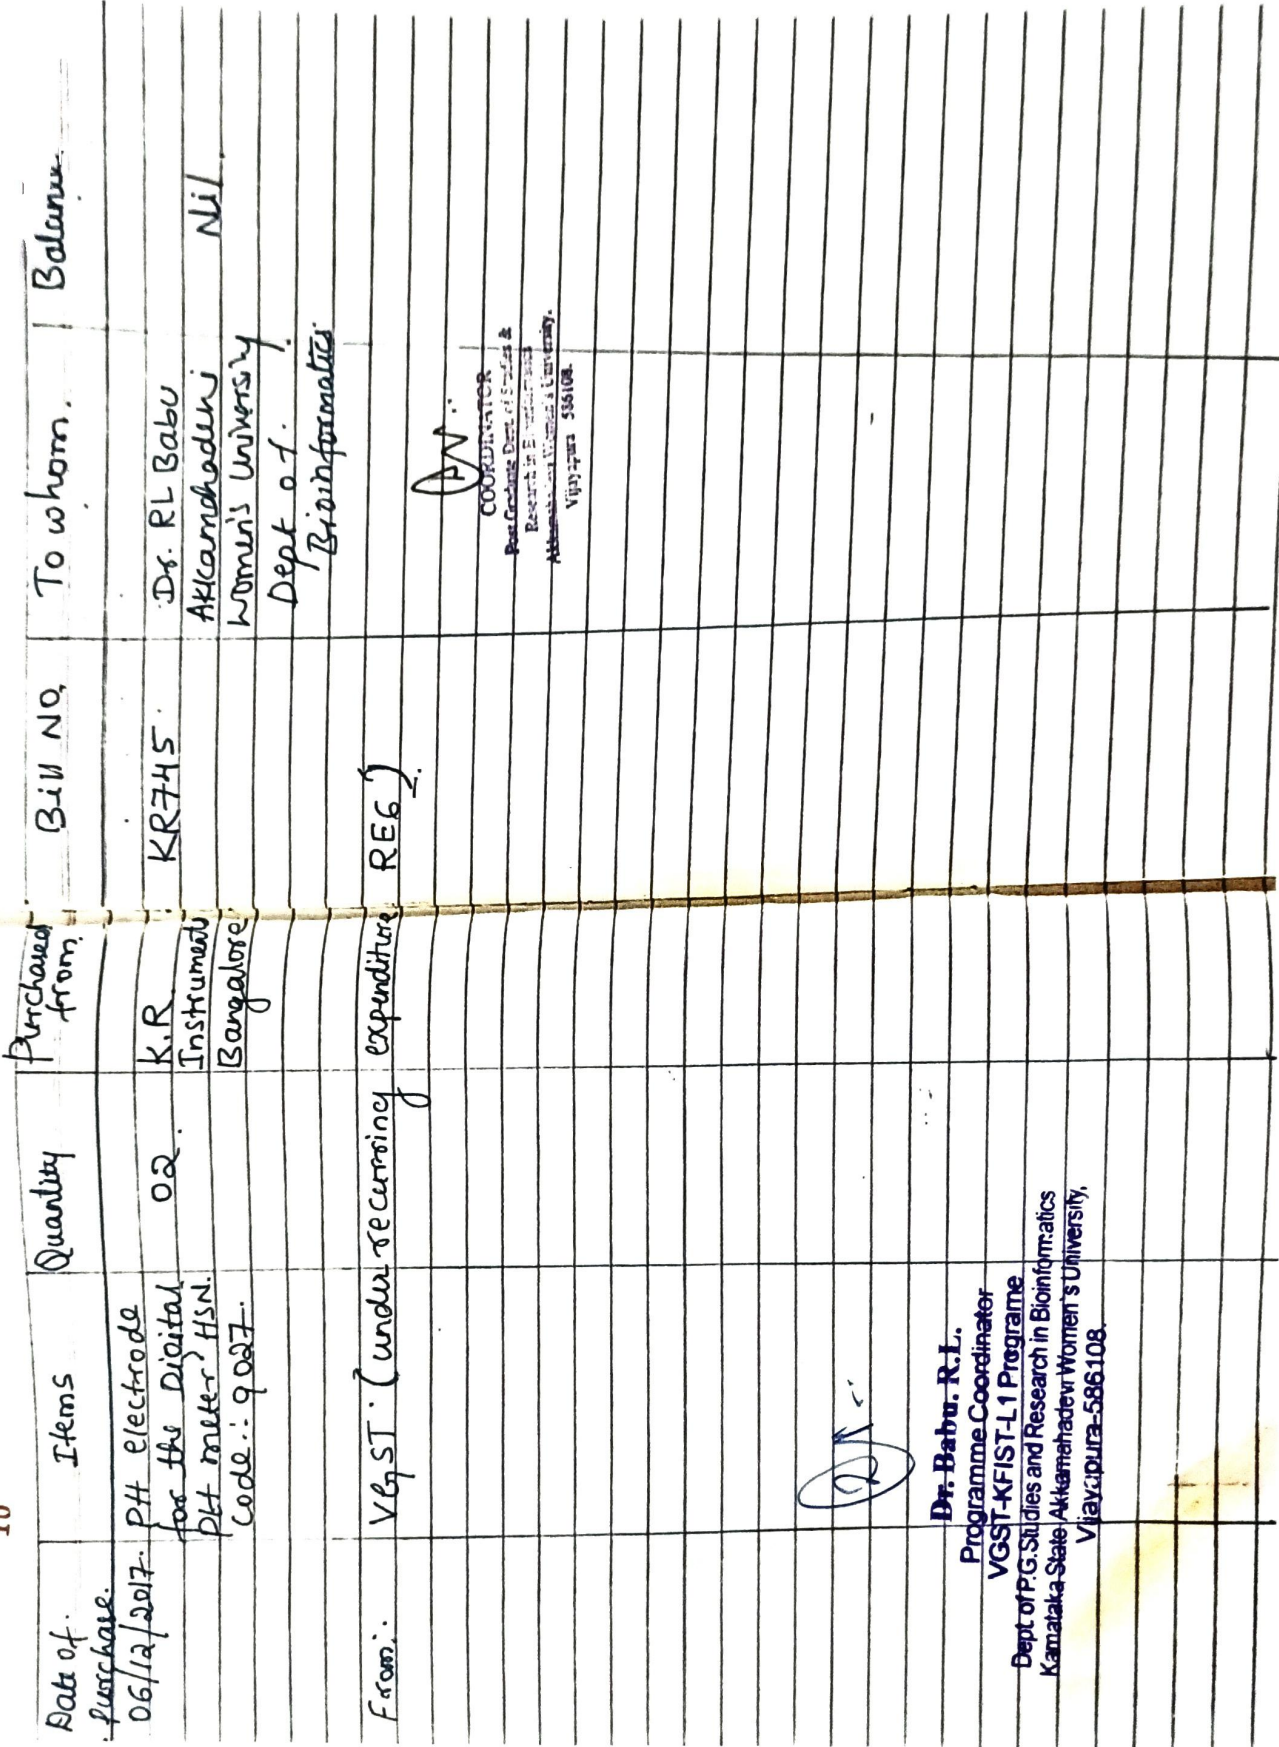 10
Date of. Purchase. Items Quantity Purchased from. Bill No, To whom. Balance.
06/12/2017. PH electrode 02. K.R. KR745. Dr. RL Babu Nil.
for the Digital Instruments Akkamahadevi
PH meter HSN. Bangalore. Women's University
Code: 9027. Dept of.
Bioinformatics.
From:. VGST. (under recurring expenditure REG).
COORDINATOR
Post Graduate Dept. of Studies &
Research in Bioinformatics
Akkamahadevi Women's University,
Vijayapura 586108.
Dr. Babu. R.L.
Programme Coordinator
VGST-KFIST-L1 Programe
Dept of P.G.Studies and Research in Bioinformatics
Karnataka State Akkamahadevi Women's University,
Vijayapura-586108.